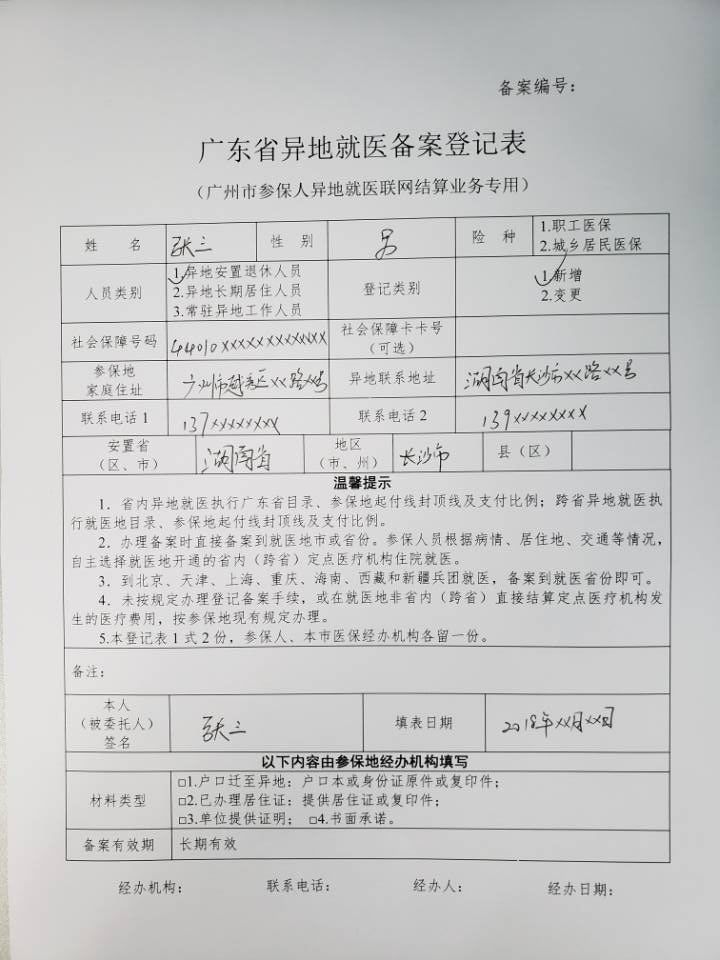 备案编号：
广东省异地就医备案登记表
（广州市参保人异地就医联网结算业务专用）
姓 名 张三 性 别 男 险 种 1.职工医保
2.城乡居民医保
人员类别 1.异地安置退休人员
2.异地长期居住人员
3.常驻异地工作人员
登记类别 1.新增
2.变更
社会保障号码 44010XXXXXXXXXXXXX 社会保障卡卡号
（可选）
参保地
家庭住址 广州市越秀区XX路XX号 异地联系地址 湖南省长沙市XX路XX号
联系电话1 137XXXXXXXX 联系电话2 139XXXXXXXX
安置省
（区、市） 湖南省 地区
（市、州） 长沙市 县（区）
温馨提示
1．省内异地就医执行广东省目录、参保地起付线封顶线及支付比例；跨省异地就医执
行就医地目录、参保地起付线封顶线及支付比例。
2．办理备案时直接备案到就医地市或省份。参保人员根据病情、居住地、交通等情况，
自主选择就医地开通的省内（跨省）定点医疗机构住院就医。
3．到北京、天津、上海、重庆、海南、西藏和新疆兵团就医，备案到就医省份即可。
4．未按规定办理登记备案手续，或在就医地非省内（跨省）直接结算定点医疗机构发
生的医疗费用，按参保地现有规定办理。
5.本登记表1式2份，参保人、本市医保经办机构各留一份。
备注：
本人
（被委托人）
签名 张三 填表日期 2018年XX月XX日
以下内容由参保地经办机构填写
材料类型 □1.户口迁至异地：户口本或身份证原件或复印件；
□2.已办理居住证：提供居住证或复印件；
□3.单位提供证明； □4.书面承诺。
备案有效期 长期有效
经办机构： 联系电话： 经办人： 经办日期：